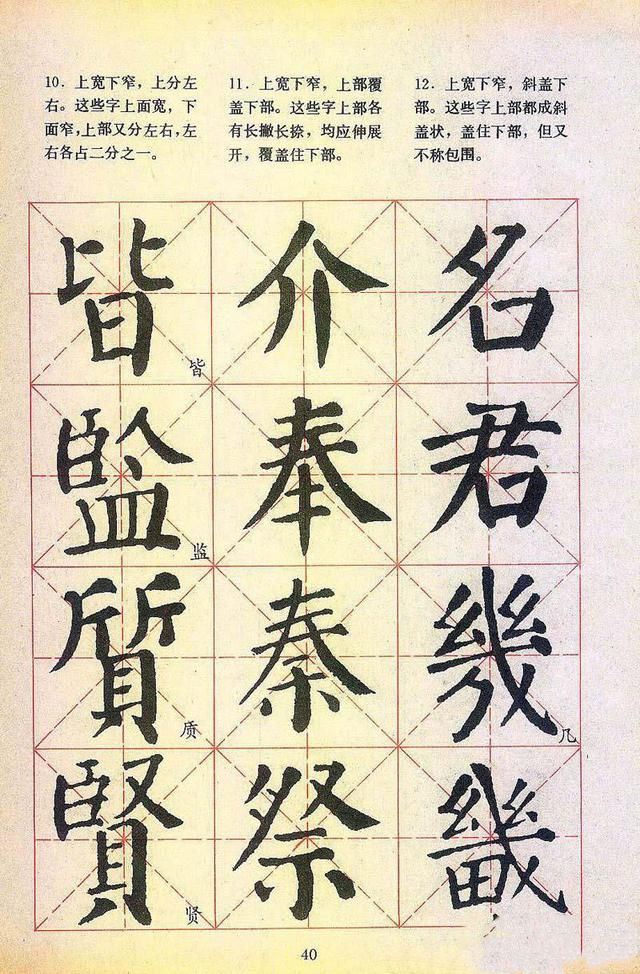 10．上宽下窄，上分左
右。这些字上面宽，下
面窄，上部又分左右，左
右各占二分之一。
11．上宽下窄，上部覆
盖下部。这些字上部各
有长撇长捺，均应伸展
开，覆盖住下部。
12．上宽下窄，斜盖下
部。这些字上部都成斜
盖状，盖住下部，但又
不称包围。
皆 皆 介 名
監 监 奉 君
質 质 秦 幾 几
賢 贤 祭 畿
40